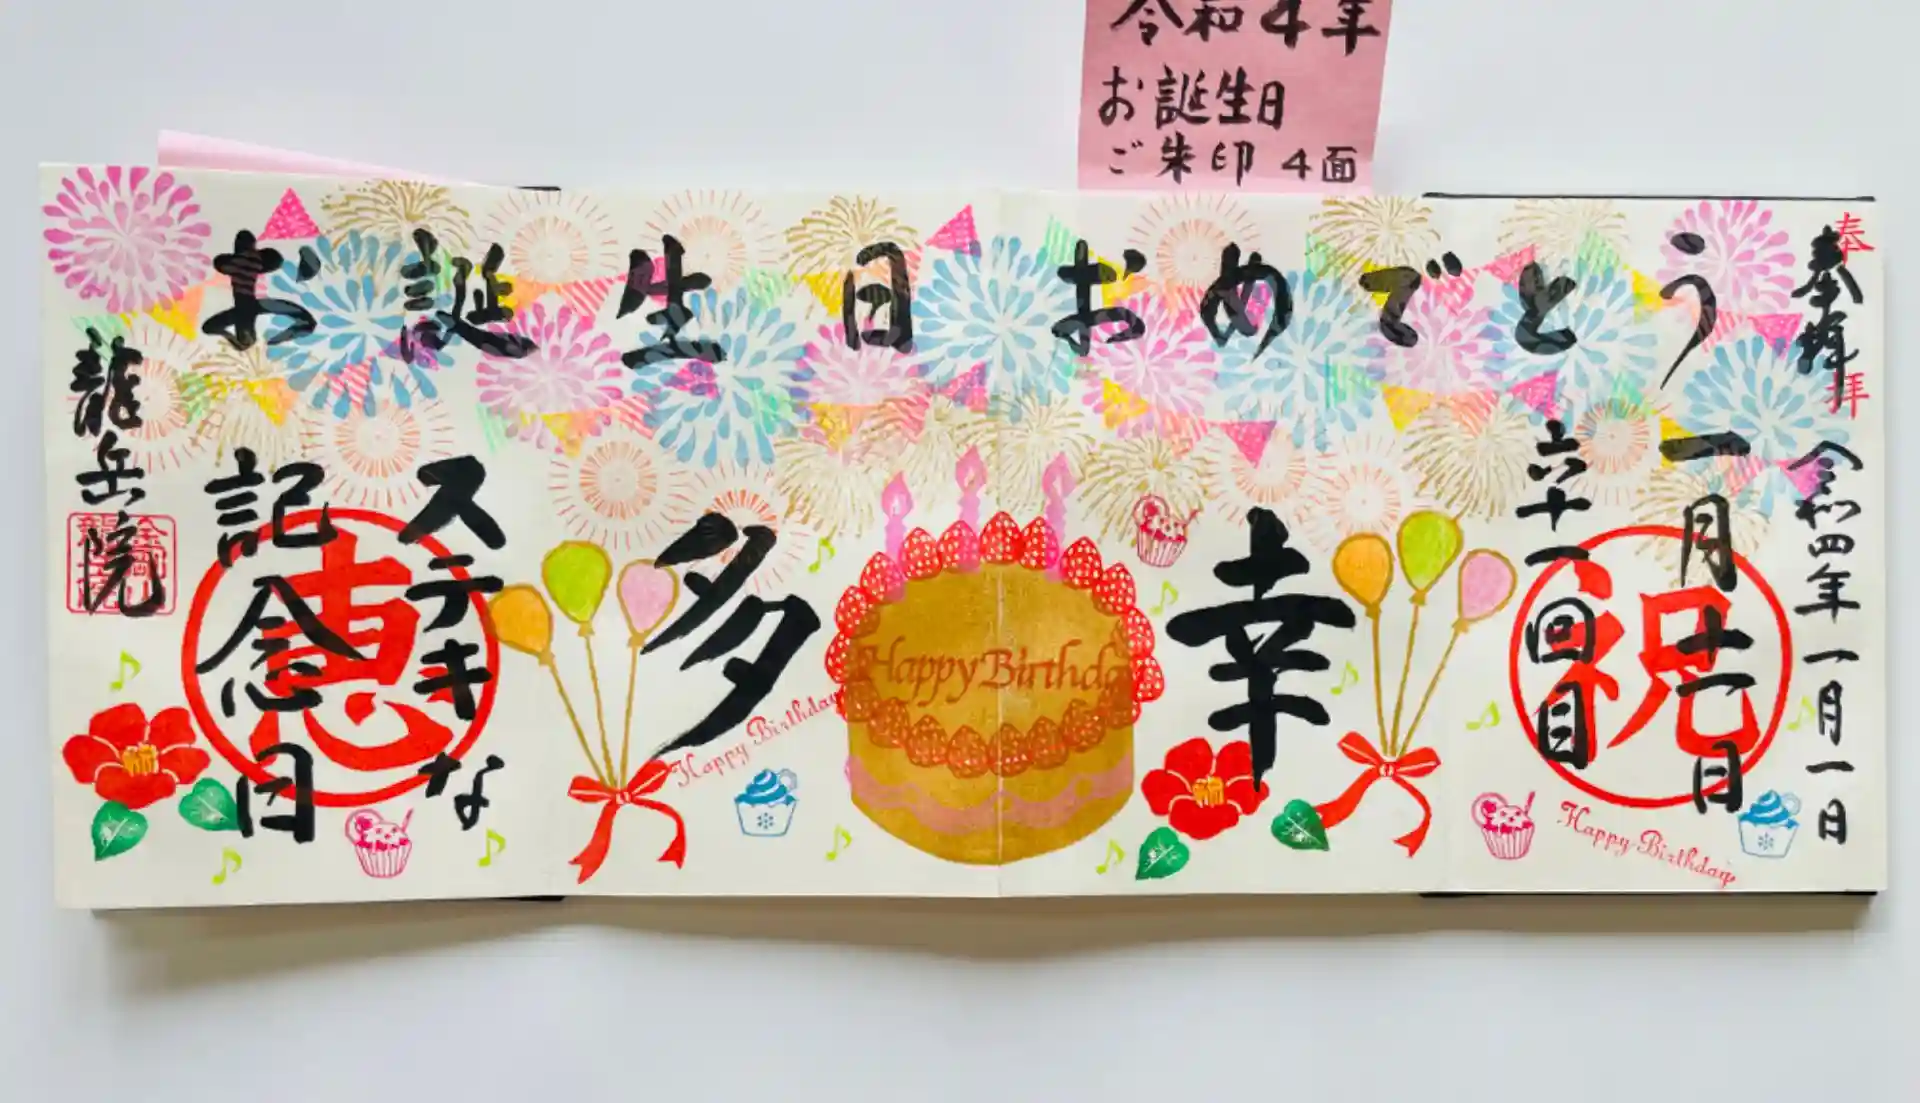 令和4年
お誕生日
ご朱印 4面
お誕生日おめでとう
奉拝
奉拝
令和四年一月一日
一月十一日
六十一回目
祝
幸
多
Happy Birthday
ステキな
記念日
恵
龍岳院
Happy Birthday
Happy Birthday